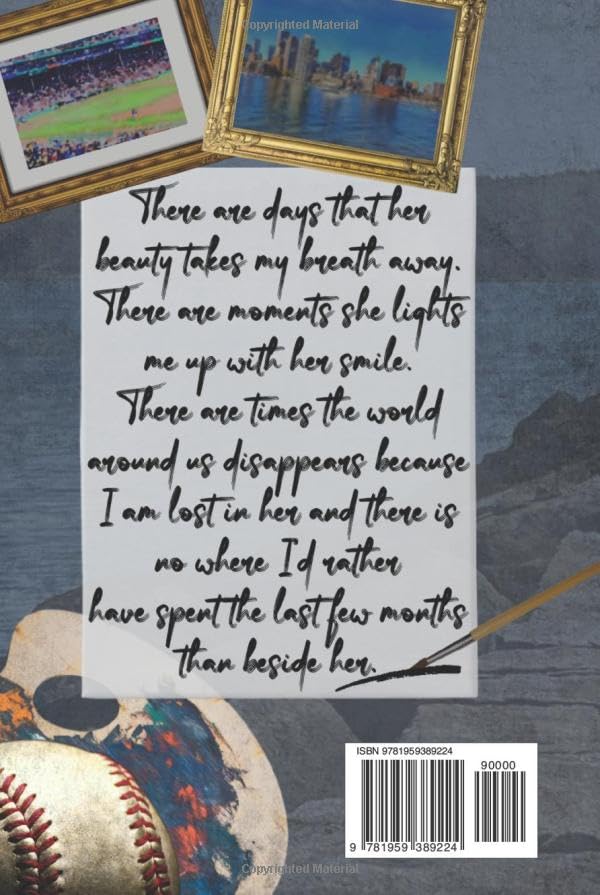 Copyrighted Material
There are days that her
beauty takes my breath away.
There are moments she lights
me up with her smile.
There are times the world
around us disappears because
I am lost in her and there is
no where I'd rather
have spent the last few months
than beside her.
ISBN 9781959389224
90000
9 781959 389224
Copyrighted Material